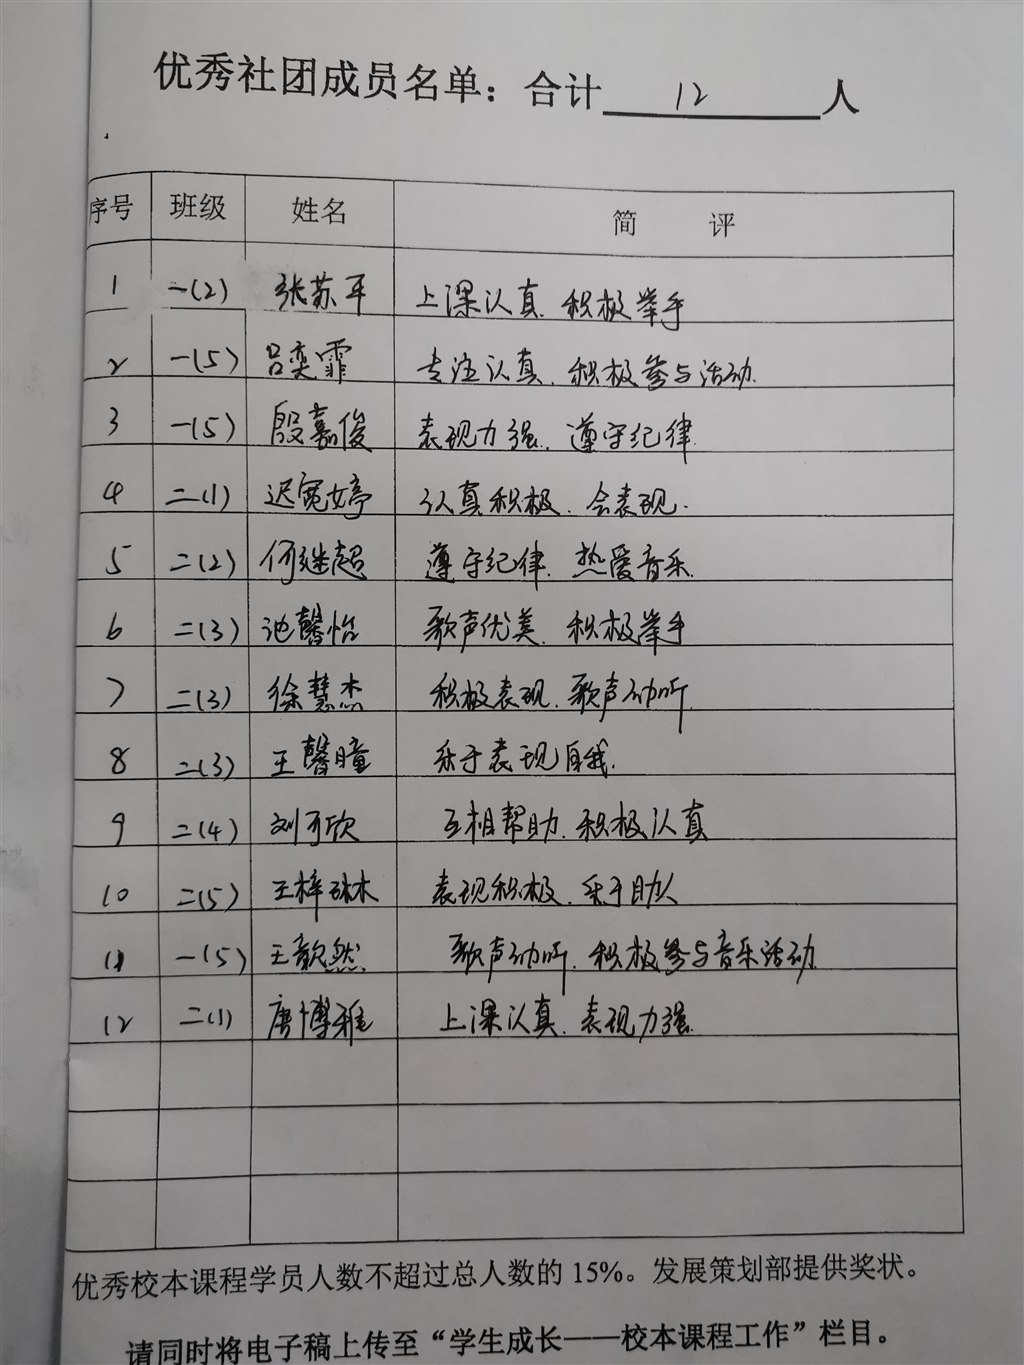 优秀社团成员名单：合计 12 人
序号 班级 姓名 简 评
1 一(2) 张苏平 上课认真、积极举手
2 一(5) 吕奕霏 专注认真、积极参与活动
3 一(5) 殷嘉俊 表现力强、遵守纪律
4 二(1) 迟宽婷 认真积极、会表现.
5 二(2) 何继超 遵守纪律、热爱音乐
6 二(3) 池馨怡 歌声优美、积极举手
7 二(3) 徐慧杰 积极表现、歌声动听
8 二(3) 王馨瞳 乐于表现自我.
9 二(4) 刘可欣 互相帮助、积极认真
10 二(5) 王梓琳 表现积极、乐于助人
11 一(5) 王歆然 歌声动听、积极参与音乐活动
12 二(1) 唐博雅 上课认真、表现力强
优秀校本课程学员人数不超过总人数的 15%。发展策划部提供奖状。
请同时将电子稿上传至“学生成长——校本课程工作”栏目。